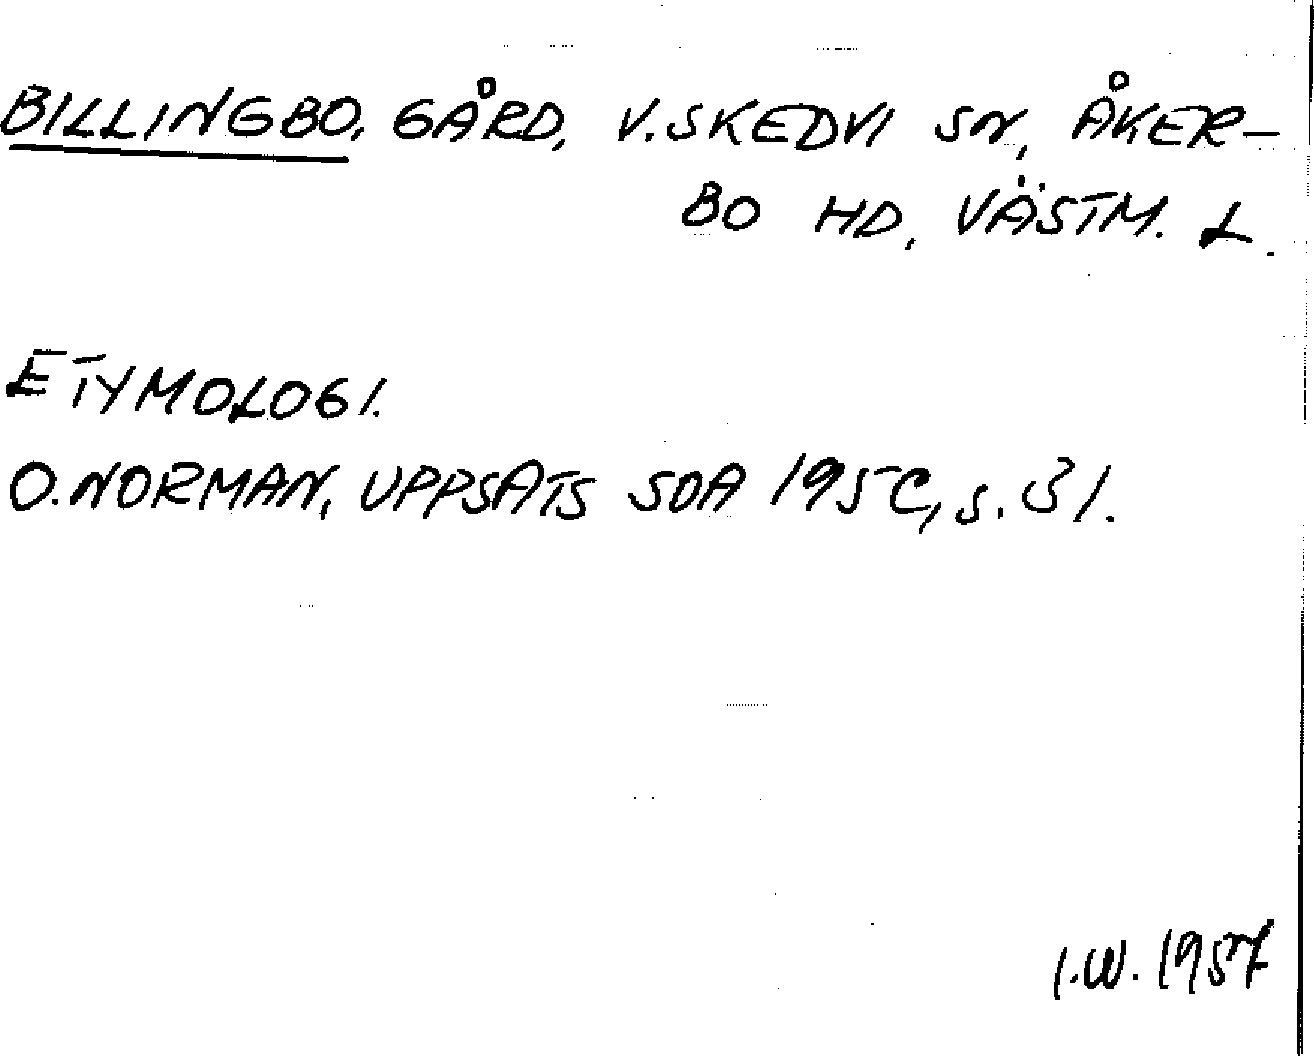 BILLINGBO, GÅRD, V. SKEDVI SN, ÅKER-
BO HD, VÄSTM. L.
ETYMOLOGI.
O. NORMAN, UPPSATS SOA 195C, s. 31.
I.W. 1957